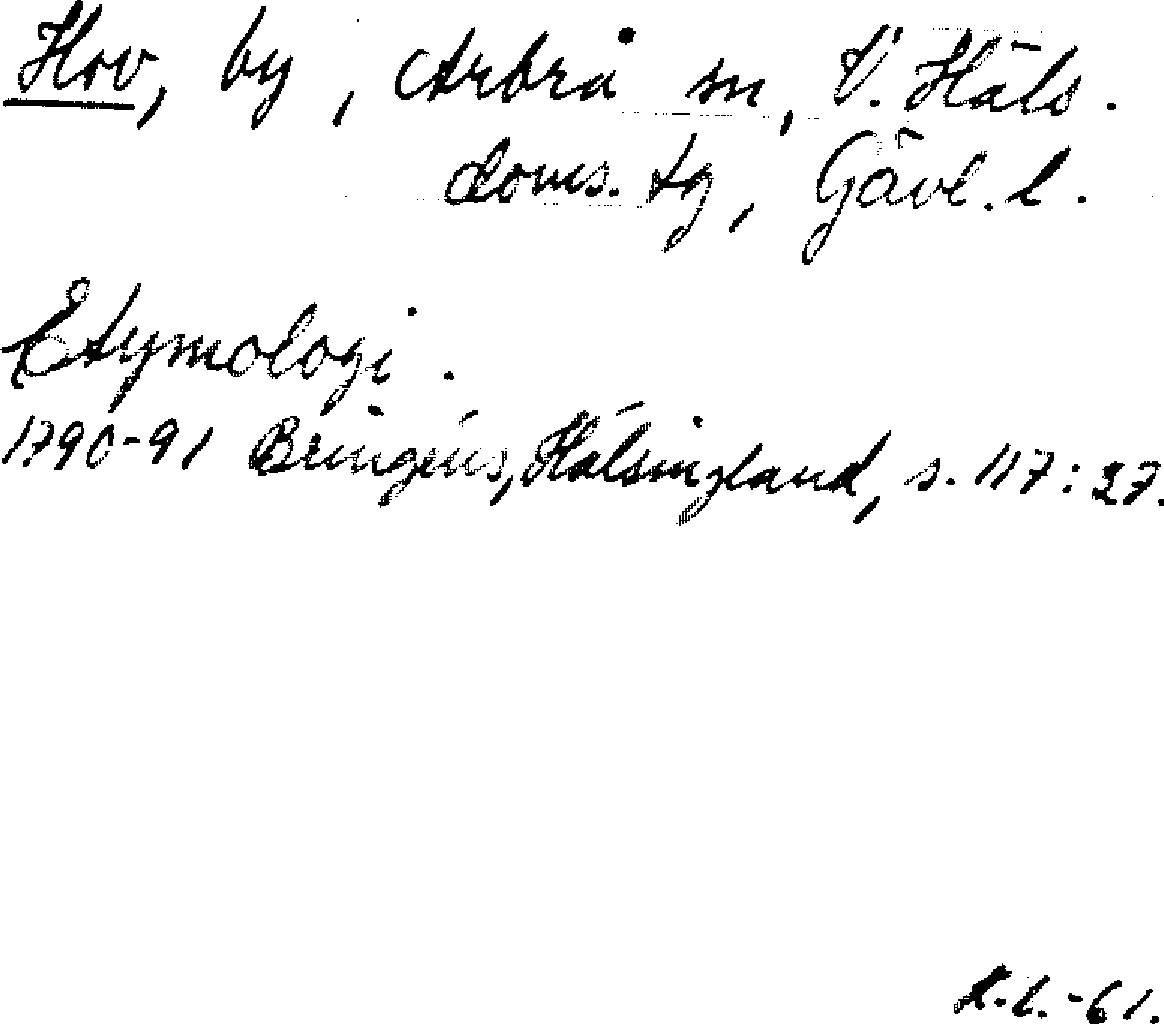 Hov, by, Arbrå sn, V. Häls.
doms. tg, Gävl. l.
Etymologi.
1790-91 Bringéus, Hälsingland, s. 117:27.
L.L.-61.